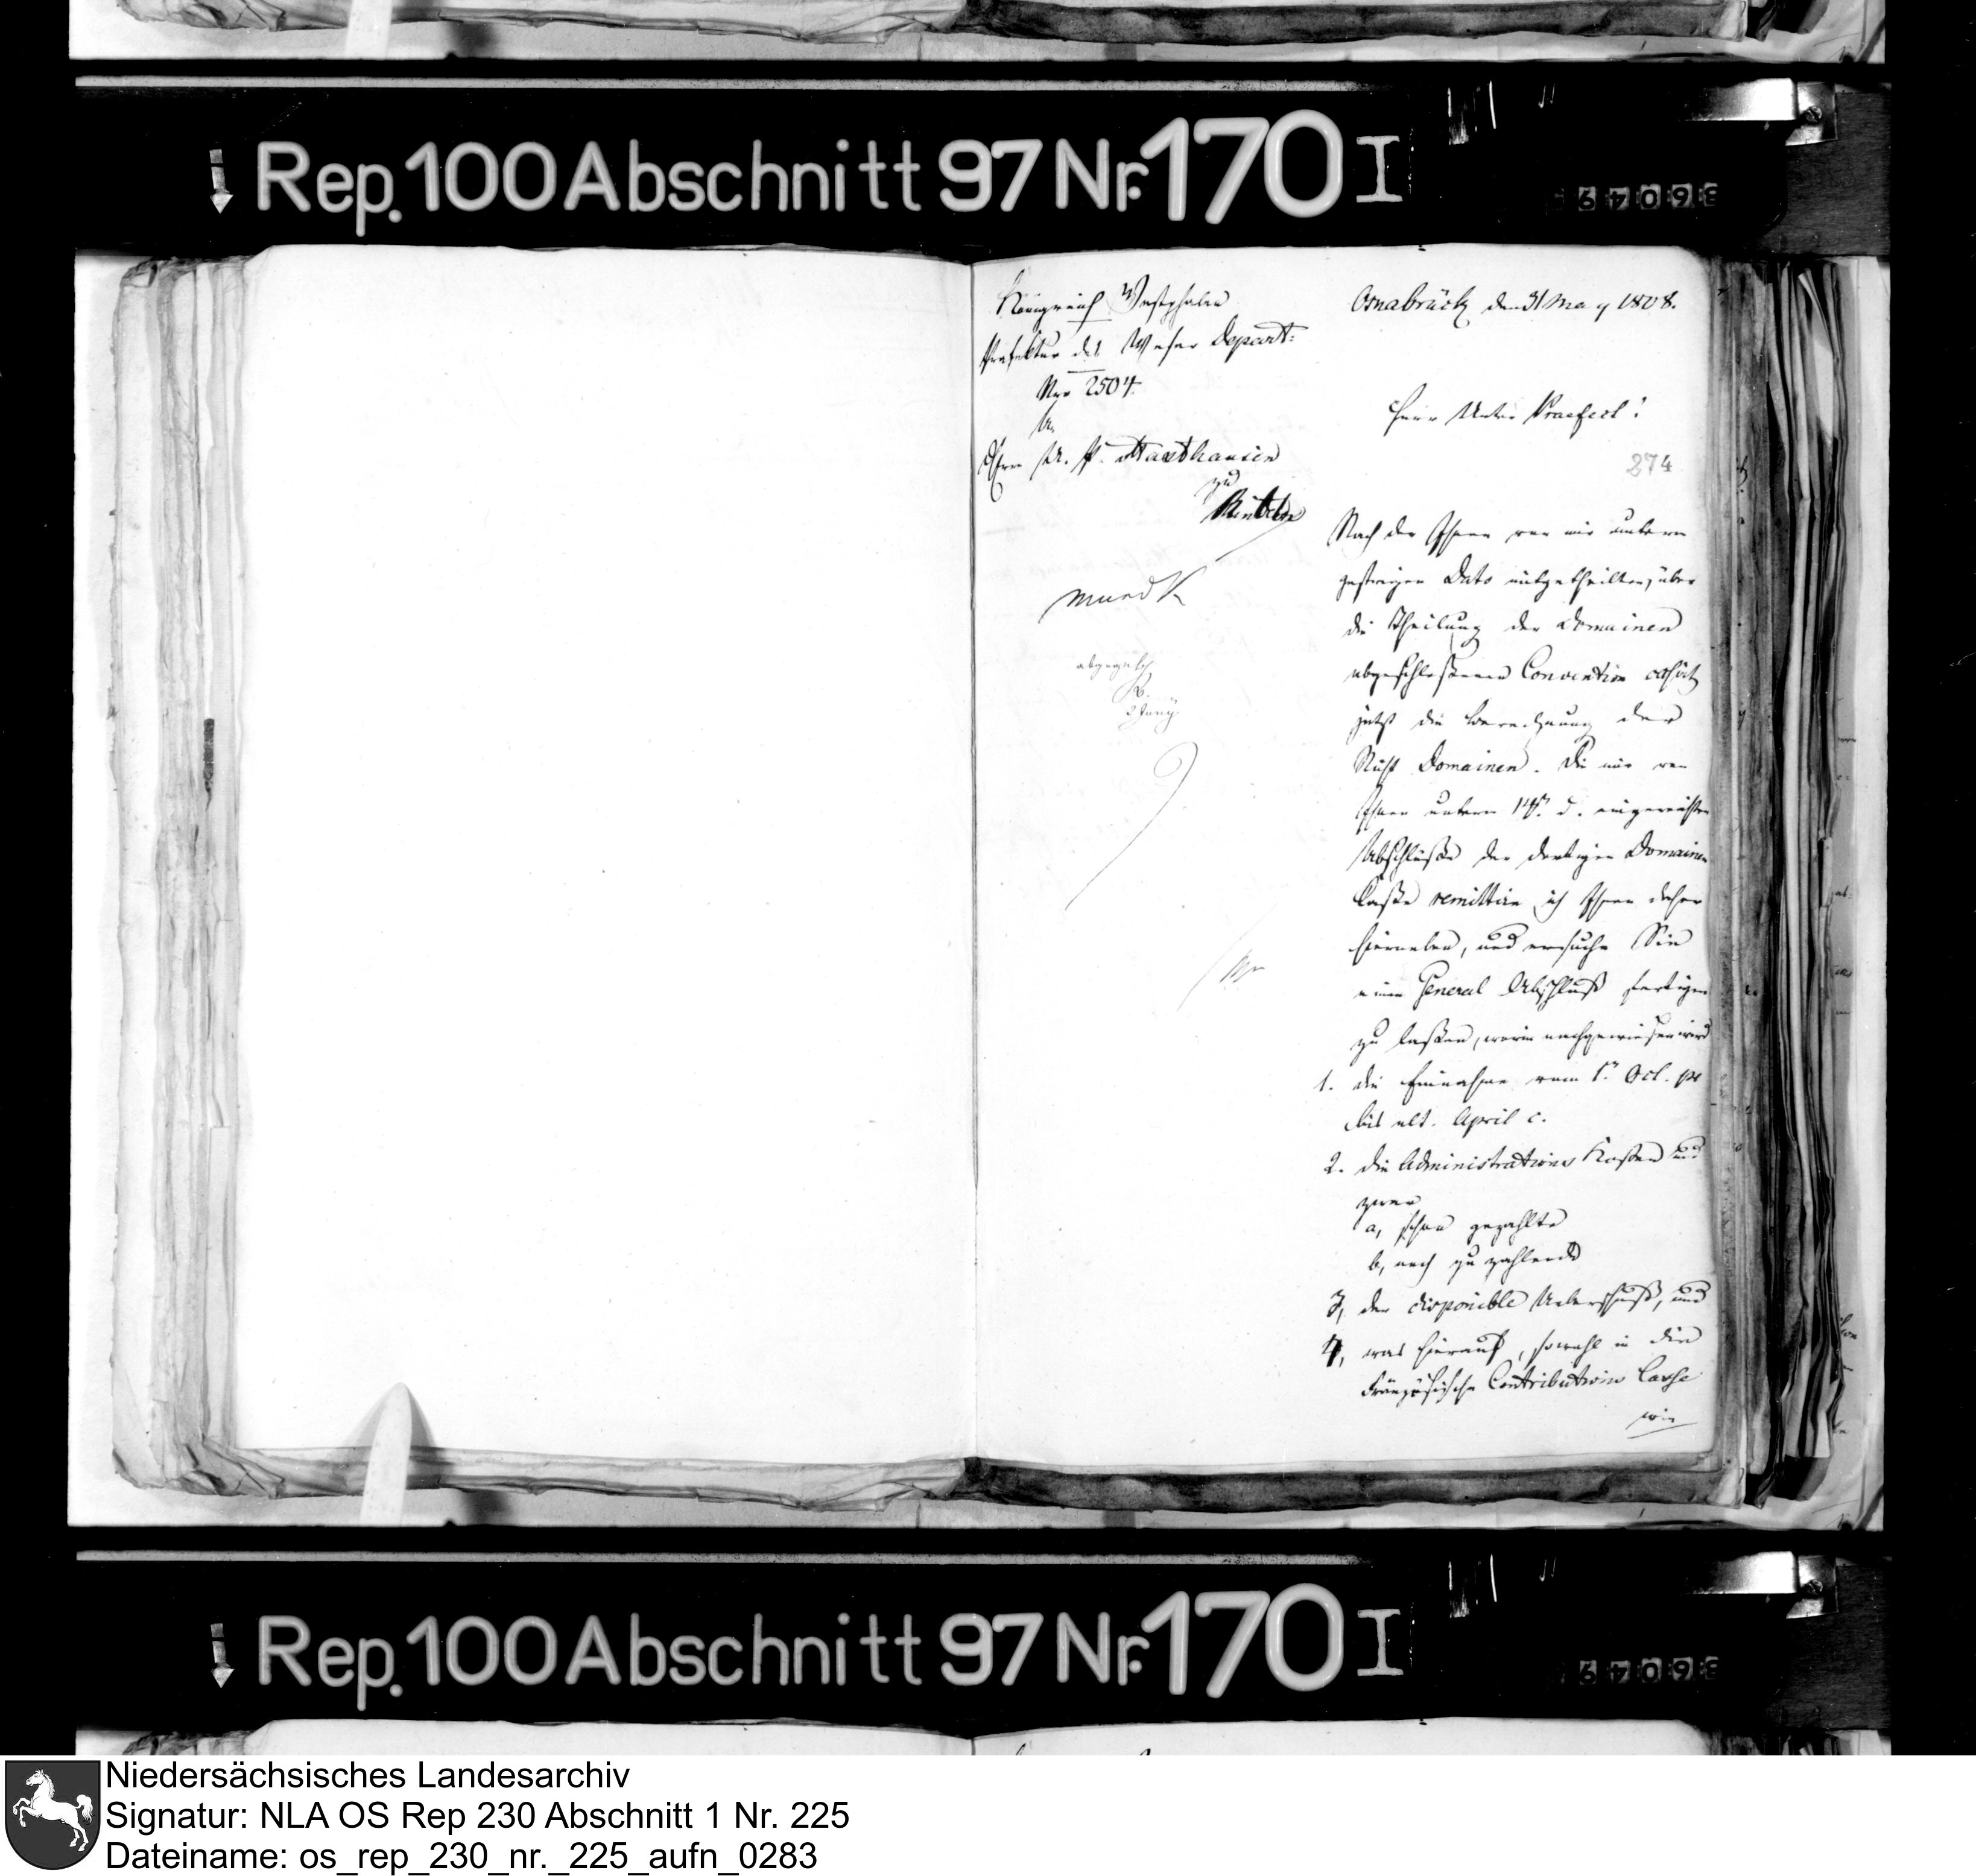 Rep. 100 Abschnitt 97 Nr. 170 I
36049
Königreich Westphalen
Präfektur des Weser Depart:
Nro 2504.
An
Herrn U. P.
zu
Rinteln
mund K
2 Juny
Osnabrück den 31 May 1808.
Herr Unter Praefect!
274
Nach der Ihnen von mir unterm
gestrigen Dato mitgetheilten, über
die Theilung der Domainen
abgeschloßenen Convention
jetzt die Berechnung der
Domainen. Die mir von
Ihnen unterm 14n d. eingereichten
Abschlüße der dortigen Domainen
Caße remittire ich Ihnen daher
hierneben, und ersuche Sie
einen General Abschluß fertigen
zu laßen, worin nachgewiesen wird
1. die Einnahme vom 1n Oct. pr
bis ult. April c.
2. die Administrations Kosten und
zwar
a, schon gezahlte
b, noch zu zahlende
3, der disponible Ueberschuß, und
4, was hierauf, sowohl in die
Französische Contributions Casse
wie
Rep. 100 Abschnitt 97 Nr. 170 I
36049
Niedersächsisches Landesarchiv
Signatur: NLA OS Rep 230 Abschnitt 1 Nr. 225
Dateiname: os_rep_230_nr._225_aufn_0283